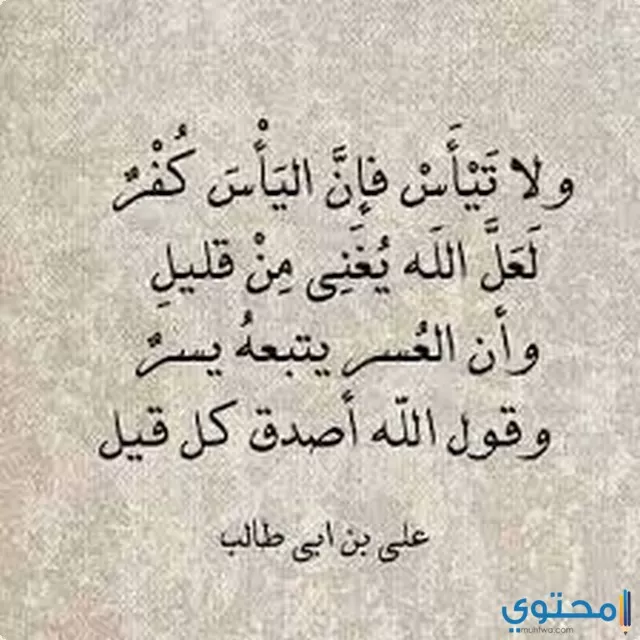 ولا تَيْأَسْ فإنَّ اليَأْسَ كُفْرٌ
لَعَلَّ اللَه يُغَنِى مِنْ قليلِ
وأن العُسر يتبعهُ يسرٌ
وقول اللّه أصدق كل قيل
على بن ابى طالب
محتوى
muhtwa.com